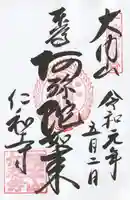 大内山
令和元年
五月二日
奉拝
阿弥陀如来
仁和寺